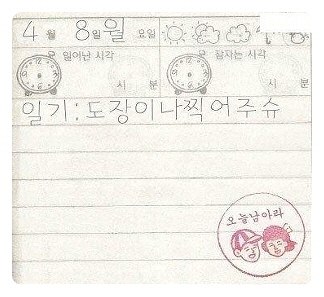 4월 8일 월요일
일어난 시각 잠자는 시각
시 분 시 분
일기:도장이나찍어주슈
오늘남아라